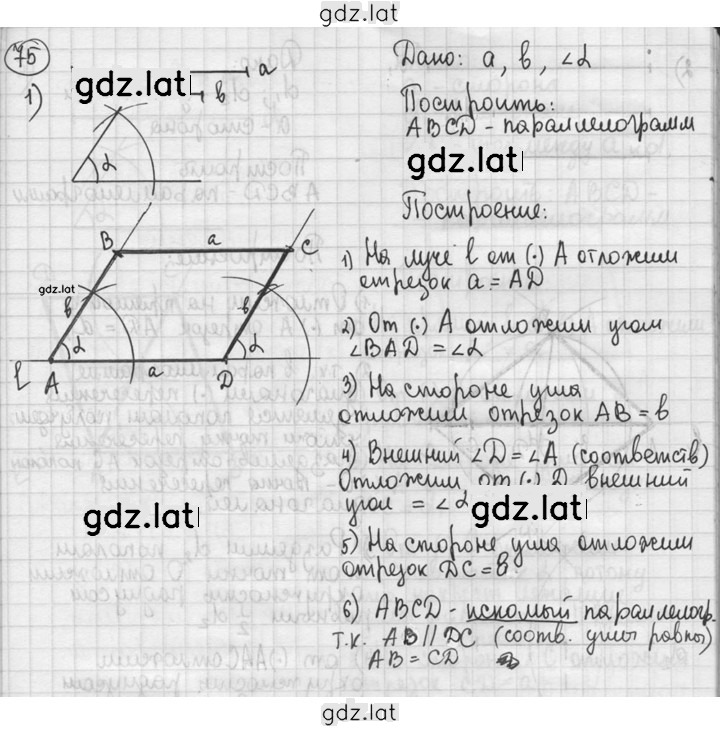 gdz.latl
75
1)
a
в
gdz.latl
α
Дано: a, в, ∠α
Построить:
ABCD - параллелограмм
gdz.latl
Построение:
B a C
gdz.latl
в в
α α
ℓ A a D
1) На луче ℓ от (·) A отложим
отрезок a = AD
2) От (·) A отложим угол
∠BAD = ∠α
3) На стороне угла
отложим отрезок AB = в
4) Внешний ∠D = ∠A (соответств)
Отложим от (·) D внешний
угол = ∠α
gdz.latl
gdz.latl
5) На стороне угла отложим
отрезок DC = в
6) ABCD - искомый параллелогр.
т.к. AB // DC (соотв. углы равны)
AB = CD
gdz.latl